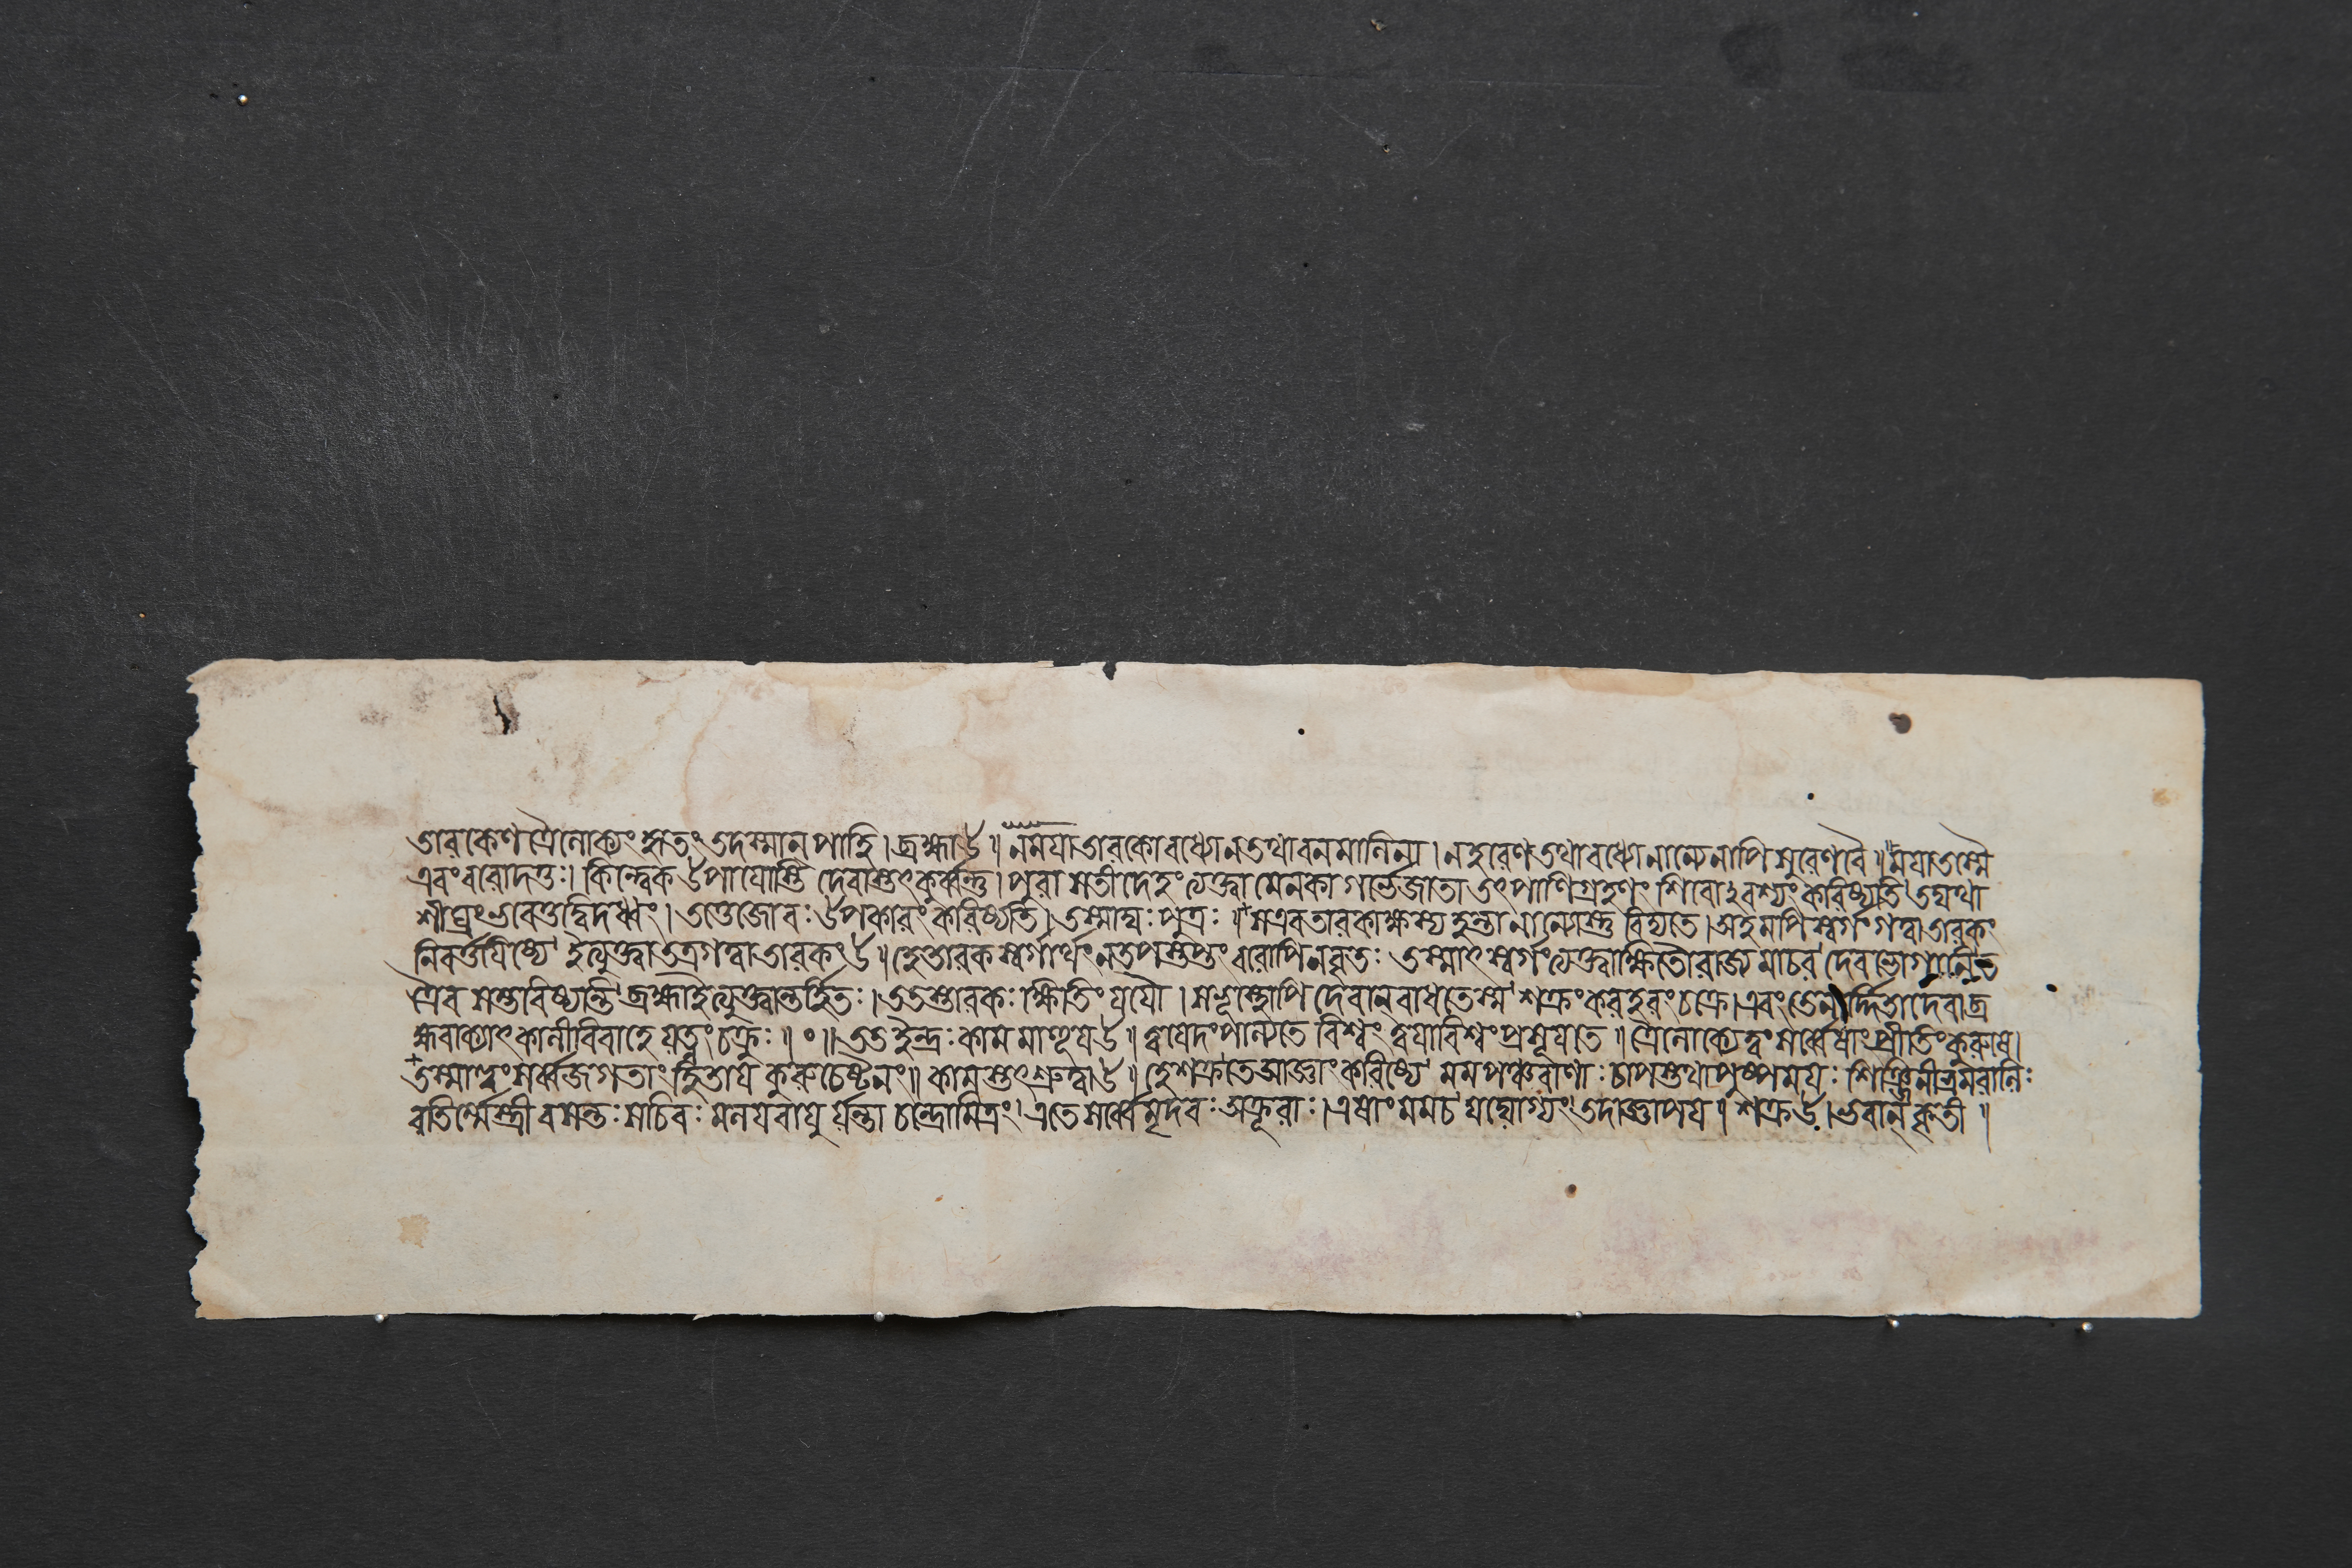 তারকেণ ত্রৈলোক্যং হৃতং তদস্মান্ পাহি । ব্রহ্মা উ ॥ ন মযা তারকো বধ্যো ন তথা বনমালিনা । ন হরেণ তথা বধ্যো নান্যেনাপি সুরেণ বৈ ॥ মযা তস্মৈ
এবং বরো দত্তঃ । কিন্ত্বেক উপাযোস্তি দেবাস্তৎ কুর্ব্বন্তু । পুরা সতী দেহং ত্যক্ত্বা মেনকাগর্ব্ভে জাতা তৎপাণিগ্রহণং শিবোঽবশ্যং করিষ্যতি তদ্যথা
শীঘ্রং ভবেত্তদ্বিদধ্বং । তত্তেজো বঃ উপকারং করিষ্যতি । তস্মাদ্যঃ পুত্রঃ ॥ স এব তারকাক্ষস্য হন্তা নান্যোস্তু বিদ্যতে । অহমপি স্বর্গং গত্বা তারকং
নিবর্ত্তযিষ্যে ইত্যুক্ত্বা তত্র গত্বা তারকং উ ॥ হে তারক স্বর্গার্থং ন তপস্তপ্তং বরোপি ন বৃতঃ তস্মাৎ স্বর্গং ত্যক্ত্বা ক্ষিতৌ রাজ্যমাচর দেবভোগ্যানি ত
ত্রৈব সম্ভাবিষ্যন্তি ব্রহ্মা ইত্যুক্ত্বান্তর্হিতঃ । ততস্তারকঃ ক্ষিতিং যযৌ । স ভূস্থোপি দেবান্ বাধতে স্ম শক্রং করহরং চক্রে । এবং তেনার্দ্দিতা দেবা ব্র
হ্মবাক্যাৎ কালীবিবাহে যত্নং চক্রুঃ ॥ ০ ॥ তত ইন্দ্রঃ কামমাহূয উ ॥ ত্বযেদং পাল্যতে বিশ্বং ত্বযা বিশ্বং প্রসূযতে ॥ ত্রৈলোক্যে ত্বং সর্ব্বেষাং প্রীতিং করুষে ।
তস্মাত্ত্বং সর্ব্বজগতাং হিতায কুরু চেষ্টনং ॥ কামস্তৎ শ্রুত্বা উ ॥ হে শক্র তে আজ্ঞাং করিষ্যে মম পঞ্চবাণাঃ চাপস্তথা পুষ্পময়ঃ শিঞ্জিনী ভ্রমরালিঃ
রতির্ম্মে স্ত্রী বসন্তঃ সচিবঃ মলযবাযুর্য্যন্তা চন্দ্রো মিত্রং । এতে সর্ব্বে মৃদবঃ অক্রূরাঃ । এষাং মম চ যদ্যোগ্যং তদাজ্ঞাপয । শক্র উ । ভবান্ কৃতী ॥